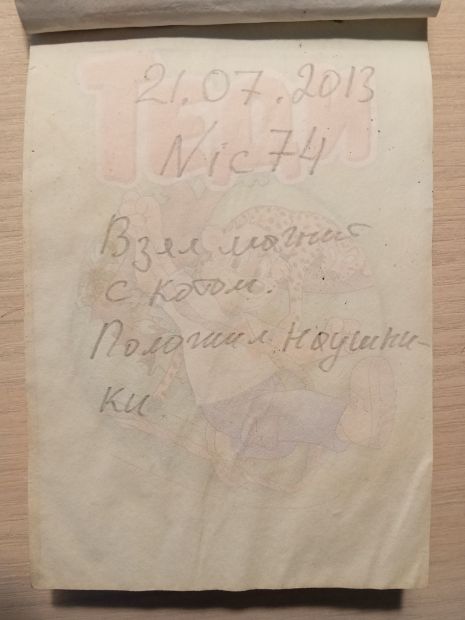 21.07.2013
Nic74
Взял магнит
с котом.
Положил наушни-
ки.